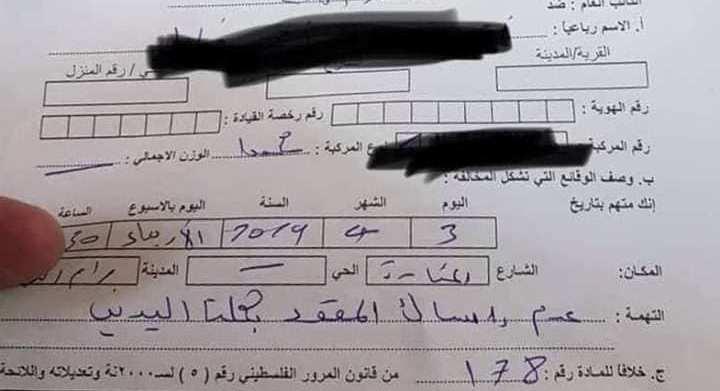 النائب العام : ضد
أ. الاسم رباعياً :
القرية/المدينة / رقم المنزل
رقم الهوية : رقم رخصة القيادة :
رقم المركبة المركبة : الوزن الاجمالي :
ب. وصف الوقائع التي تشكل المخالفة :
إنك متهم بتاريخ
اليوم الشهر السنة اليوم بالاسبوع الساعة
3 4 2019 الأربعاء 30
المكان: الشارع الحي — المدينة
التهمة : عدم امساك المقود بكلتا اليدين
ج. خلافاً للمادة رقم : 178 من قانون المرور الفلسطيني رقم (٥) لسـ٢٠٠٠ـنة وتعديلاته واللائحة